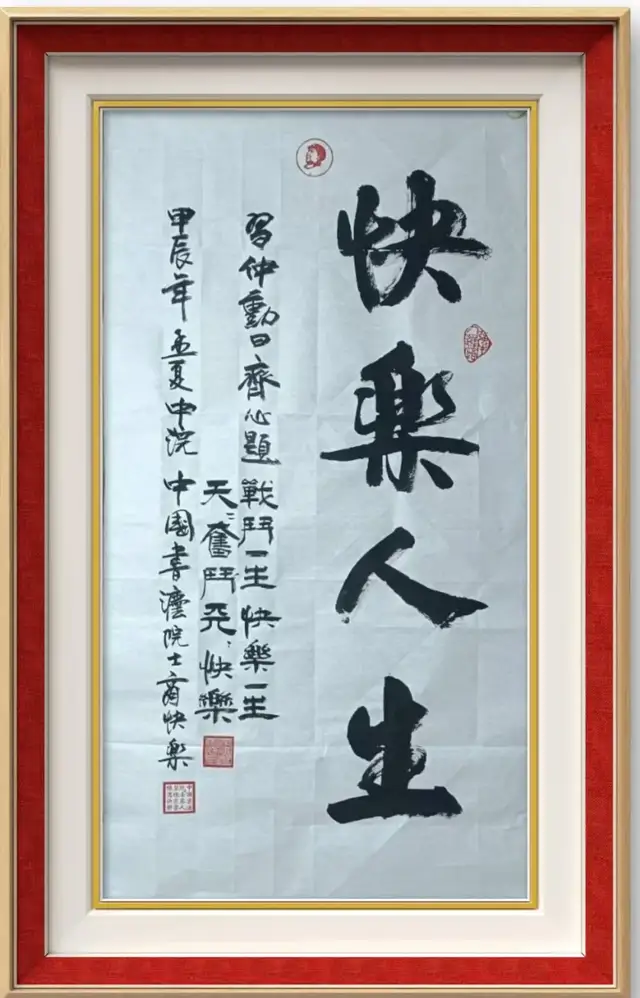 快樂人生
習仲勳曰齊心題戰鬥一生快樂一生
天〻奮鬥天〻快樂
甲辰年孟夏中浣中國書灋院士商快樂